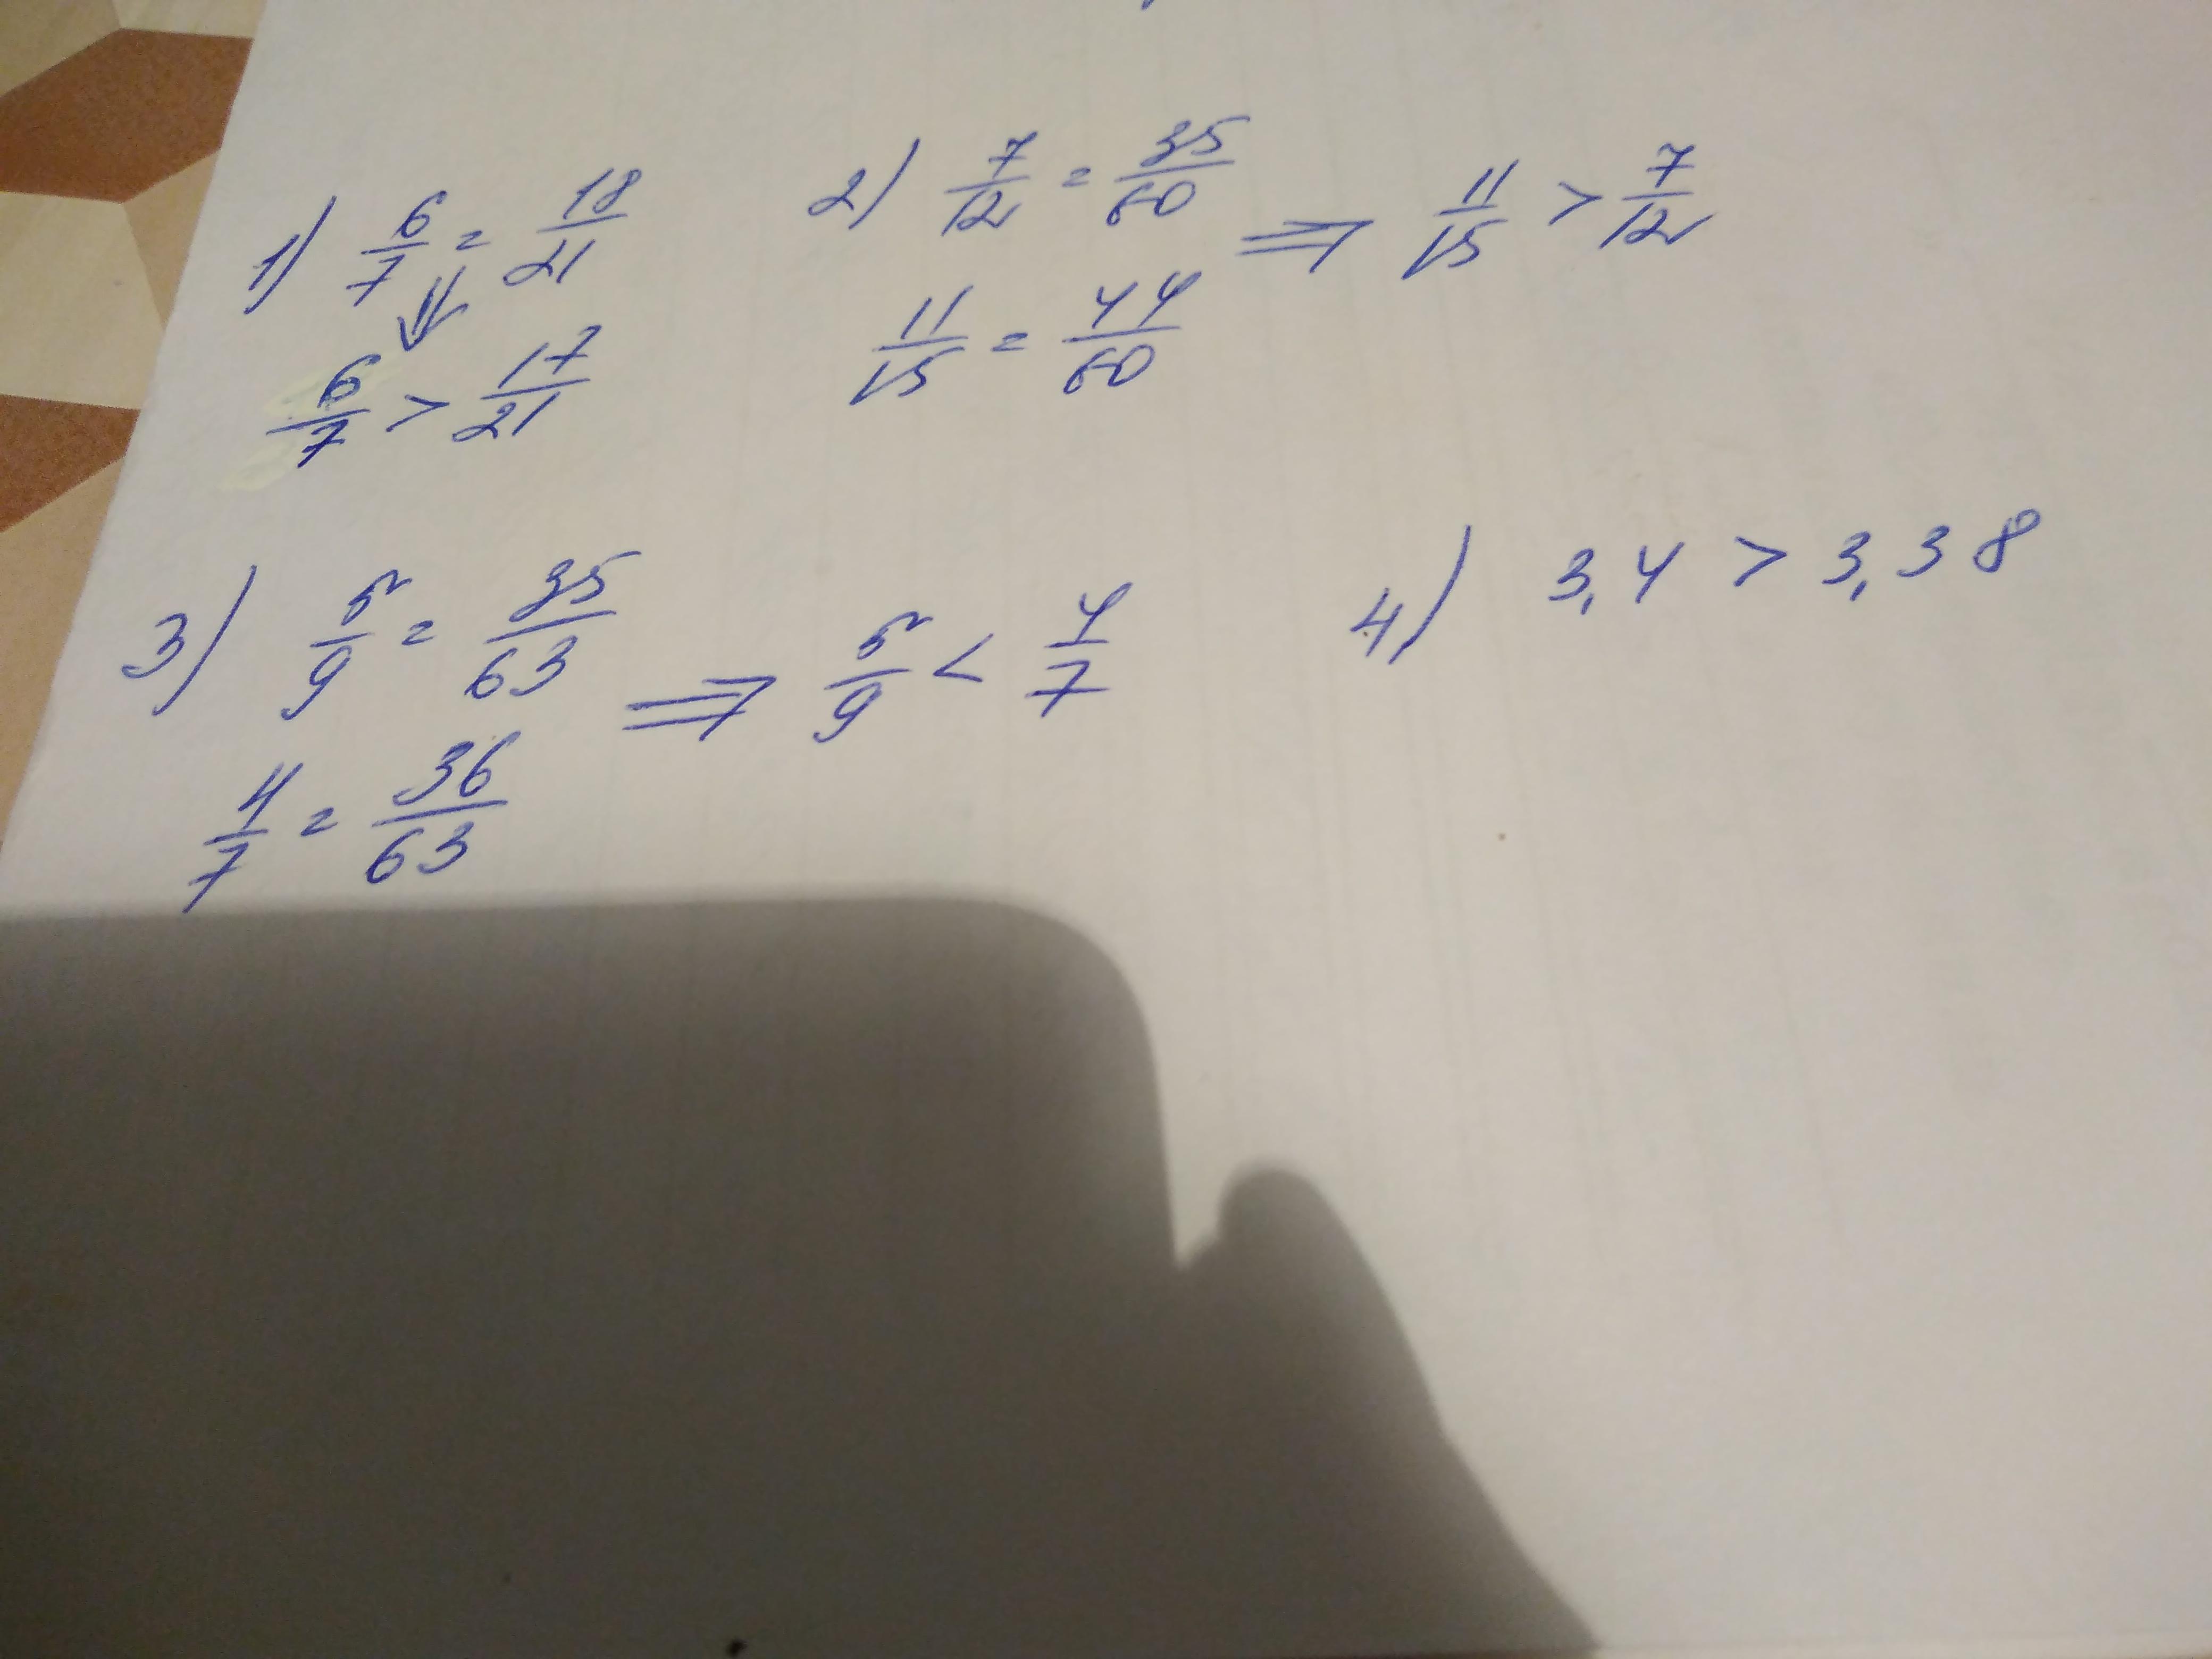 1) 6/7 = 18/21
⇓
6/7 > 17/21
2) 7/12 = 35/60 ⇒ 11/15 > 7/12
11/15 = 44/60
3) 5/9 = 35/63 ⇒ 5/9 < 4/7
4/7 = 36/63
4) 3,4 > 3,38